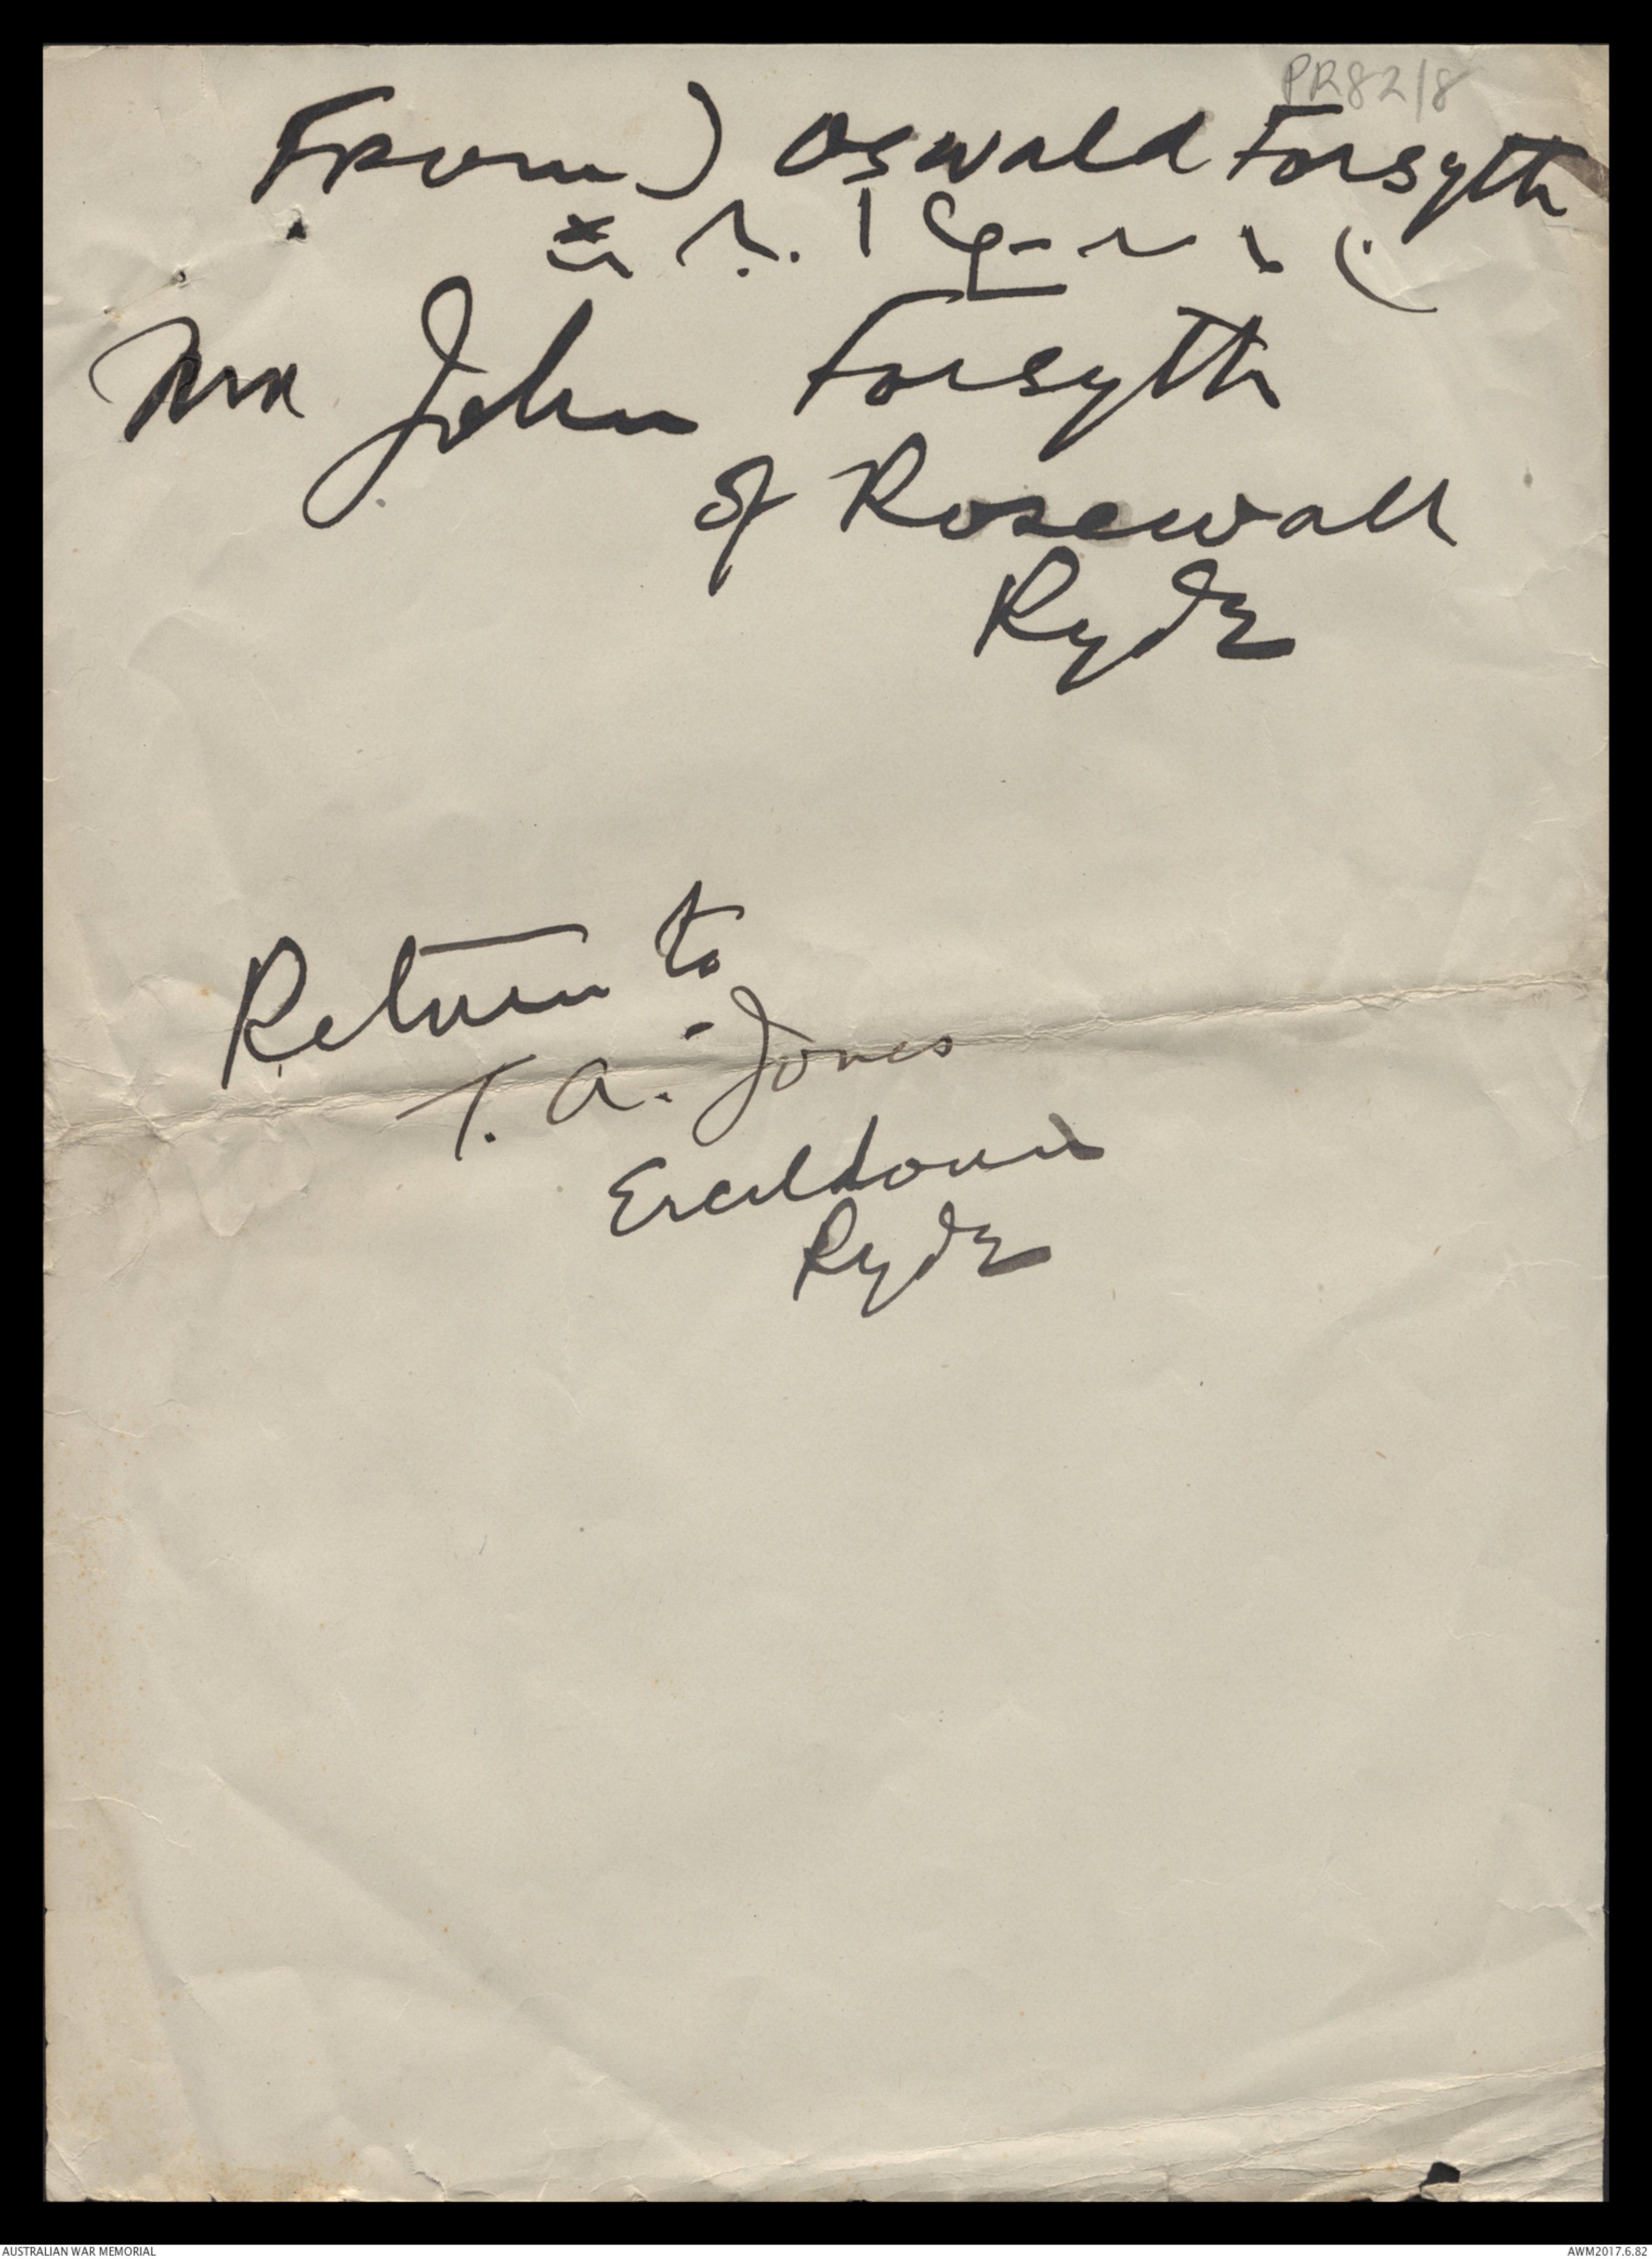 PR82/8
From) Oswald Forsyth
John Forsyth
of Rosewall
Ryde
Return to
T. A. Jones
Ercildoune
Ryde
AUSTRALIAN WAR MEMORIAL
AWM2017.6.82